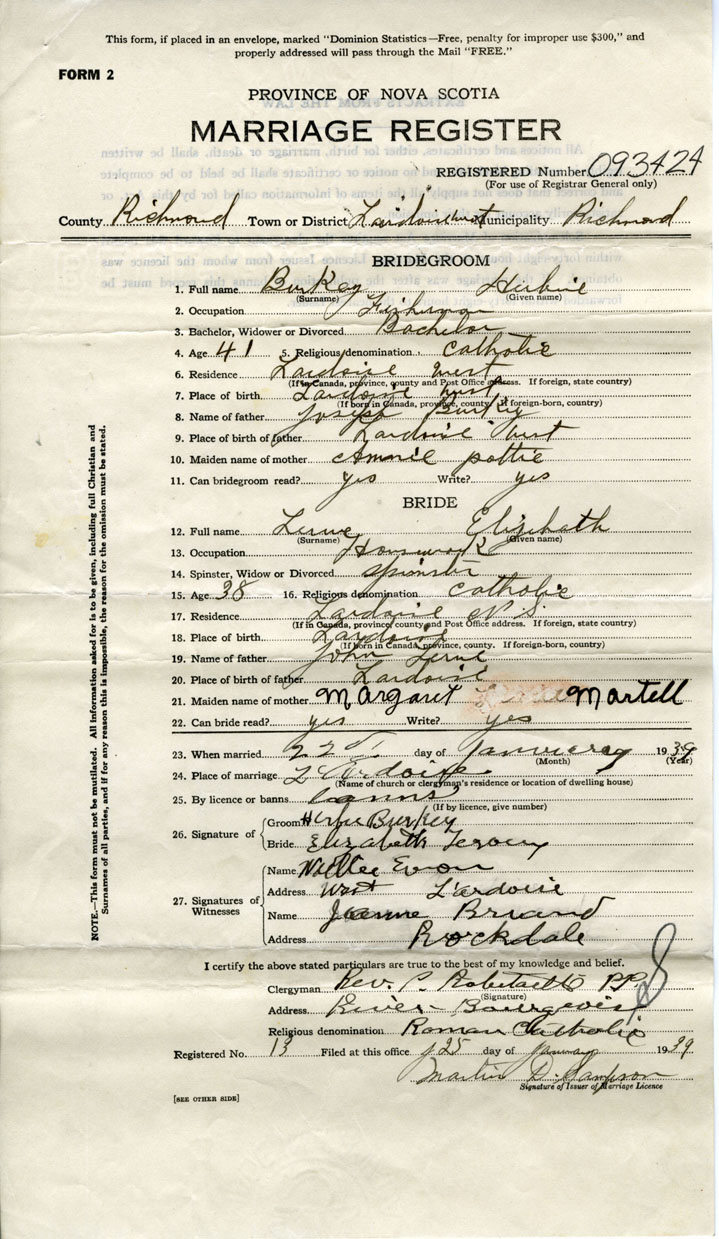 This form, if placed in an envelope, marked "Dominion Statistics—Free, penalty for improper use $300," and
properly addressed will pass through the Mail "FREE."
FORM 2
PROVINCE OF NOVA SCOTIA
MARRIAGE REGISTER
REGISTERED Number 093424
(For use of Registrar General only)
County Richmond Town or District L'ardoise west Municipality Richmond
BRIDEGROOM
1. Full name Burkey Herbie
(Surname) (Given name)
2. Occupation Fisherman
3. Bachelor, Widower or Divorced Bachelor
4. Age 41 5. Religious denomination Catholic
6. Residence Lardoise west
(If in Canada, province, county and Post Office address. If foreign, state country)
7. Place of birth Lardoise west
(If born in Canada, province, county. If foreign-born, country)
8. Name of father Joseph Burkey
9. Place of birth of father Lardoise west
10. Maiden name of mother Annie pottie
11. Can bridegroom read? yes Write? yes
BRIDE
12. Full name Elizebath
(Surname) (Given name)
13. Occupation Housework
14. Spinster, Widow or Divorced Spinster
15. Age 38 16. Religious denomination Catholic
17. Residence Lardoise N S.
(If in Canada, province, county and Post Office address. If foreign, state country)
18. Place of birth Lardoise
(If born in Canada, province, county. If foreign-born, country)
19. Name of father John
20. Place of birth of father Lardoise
21. Maiden name of mother Margaret Martell
22. Can bride read? yes Write? yes
23. When married 22 day of January 1939
(Month) (Year)
24. Place of marriage L'Ardoise
(Name of church or clergyman's residence or location of dwelling house)
25. By licence or banns banns
(If by licence, give number)
26. Signature of
Groom Burkey
Bride Elizabeth
27. Signatures of Witnesses
Name Willie
Address West L'ardoise
Name Briand
Address Rockdale
I certify the above stated particulars are true to the best of my knowledge and belief.
Clergyman Rev. P.P.
(Signature)
Address River Bourgeois
Religious denomination Roman Catholic
Registered No. 13 Filed at this office 25 day of January 1939
Martin D. Sampson
Signature of Issuer of Marriage Licence
[SEE OTHER SIDE]
NOTE.—This form must not be mutilated. All information asked for is to be given, including full Christian and
Surnames of all parties, and if for any reason this is impossible, the reason for the omission must be stated.